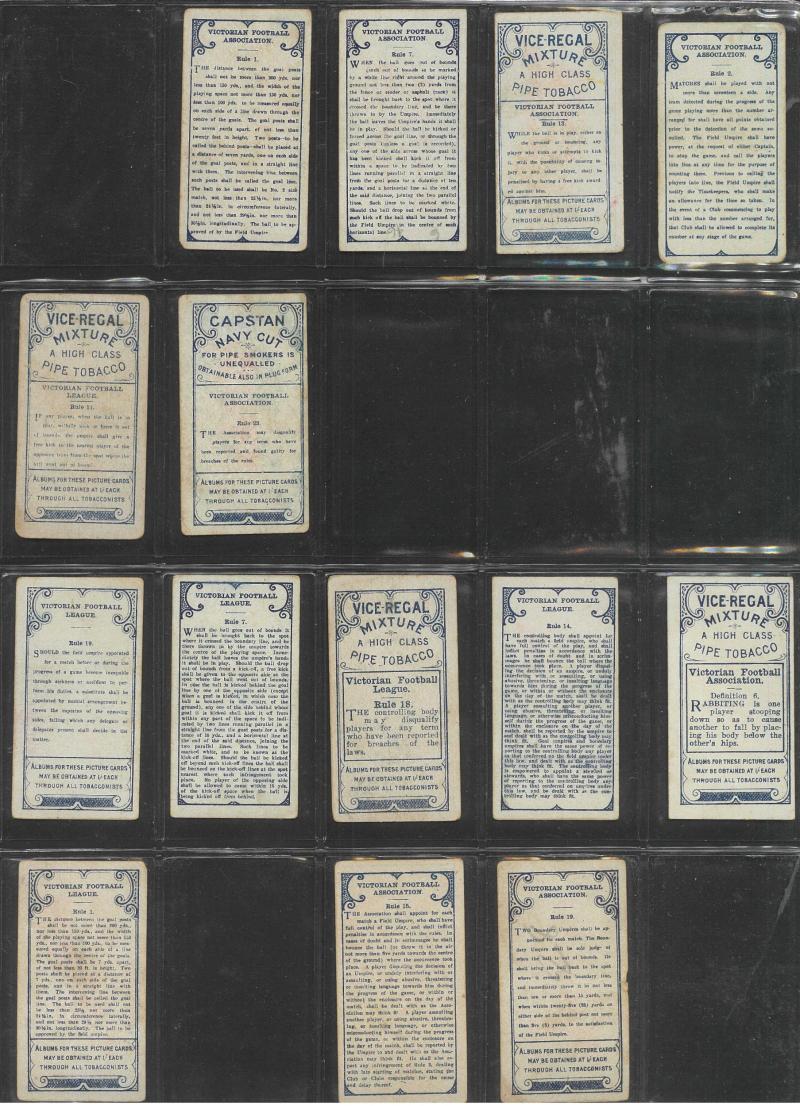 VICTORIAN FOOTBALL
ASSOCIATION.
Rule 1.
THE distance between the goal posts
shall not be more than 200 yds. nor
less than 150 yds., and the width of the
playing space not more than 150 yds. nor
less than 100 yds. to be measured equally
on each side of a line drawn through the
centre of the goals. The goal posts shall
be seven yards apart, of not less than
twenty feet in height. Two posts—to be
called the behind posts—shall be placed at
a distance of seven yards, one on each side
of the goal posts, and in a straight line
with them. The intervening line between
such posts shall be called the goal line.
The ball to be used shall be No. 2 size
match, not less than
more
than in circumference laterally,
and not less than nor more than
longitudinally. The ball to be ap-
proved of by the Field Umpire
VICTORIAN FOOTBALL
ASSOCIATION.
Rule 7.
WHEN the ball goes out of bounds
(such out of bounds to be marked
by a white line right around the playing
ground not less than two (2) yards from
the fence or tender or asphalt track) it
shall be brought back to the spot where it
crossed the boundary line, and be there
thrown in by the Umpire. Immediately
the ball leaves the Umpire's hands it shall
be in play. Should the ball be kicked or
forced across the goal line, or through the
goal posts (unless a goal is recorded),
any one of the side across whose goal it
has been kicked shall kick it off from
within a space to be indicated by two
lines running parallel in a straight line
from the goal posts for a distance of ten
yards, and a horizontal line at the end of
the said distance, joining the two parallel
lines. Such lines to be marked white.
Should the ball drop out of bounds from
such kick off the ball shall be bounced by
the Field Umpire in the centre of such
horizontal line.
VICE-REGAL
MIXTURE
A HIGH CLASS
PIPE TOBACCO
VICTORIAN FOOTBALL
ASSOCIATION.
Rule 13.
WHILE the ball is in play, either on
the ground or bouncing, any
player who kicks or attempts to kick
it, with the possibility of causing in-
jury to any other player, shall be
penalised by having a free kick award-
ed against him.
ALBUMS FOR THESE PICTURE CARDS
MAY BE OBTAINED AT 1/- EACH
THROUGH ALL TOBACCONISTS
VICTORIAN FOOTBALL
ASSOCIATION.
Rule 2.
MATCHES shall be played with not
more than seventeen a side. Any
team detected during the progress of the
game playing more than the number ar-
ranged for shall have all points obtained
prior to the detection of the same an-
nulled. The Field Umpire shall have
power, at the request of either Captain,
to stop the game, and call the players
into line at any time for the purpose of
counting them. Previous to calling the
players into line, the Field Umpire shall
notify the Timekeepers, who shall make
an allowance for the time so taken. In
the event of a Club commencing to play
with less than the number arranged for,
that Club shall be allowed to complete its
number at any stage of the game.
VICE-REGAL
MIXTURE
A HIGH CLASS
PIPE TOBACCO
VICTORIAN FOOTBALL
LEAGUE.
Rule 11.
IF any player, when the ball is in
play, wilfully kick or force it out
of bounds, the umpire shall give a
free kick to the nearest player of the
opposite team from the spot where the
ball went out of bounds.
ALBUMS FOR THESE PICTURE CARDS
MAY BE OBTAINED AT 1/- EACH
THROUGH ALL TOBACCONISTS
CAPSTAN
NAVY CUT
FOR PIPE SMOKERS IS
UNEQUALLED
OBTAINABLE ALSO IN PLUG FORM
VICTORIAN FOOTBALL
ASSOCIATION.
Rule 23.
THE Association may disqualify
players for any term who have
been reported and found guilty for
breaches of the rules.
ALBUMS FOR THESE PICTURE CARDS
MAY BE OBTAINED AT 1/- EACH
THROUGH ALL TOBACCONISTS
VICTORIAN FOOTBALL
LEAGUE.
Rule 19.
SHOULD the field umpire appointed
for a match before or during the
progress of a game become incapable
through sickness or accident to per-
form his duties, a substitute shall be
appointed by mutual arrangement be-
tween the captains of the opposing
sides, failing which any delegate or
delegates present shall decide in the
matter.
ALBUMS FOR THESE PICTURE CARDS
MAY BE OBTAINED AT 1/- EACH
THROUGH ALL TOBACCONISTS
VICTORIAN FOOTBALL
LEAGUE.
Rule 7.
WHEN the ball goes out of bounds it
shall be brought back to the spot
where it crossed the boundary line, and
be there thrown in by the umpire towards
the centre of the playing space. Immedi-
ately the ball leaves the umpire's hands
it shall be in play. Should the ball drop
out of bounds from a kick-off, a free kick
shall be given to the opposite side at the
spot where the ball went out of bounds.
In case the ball is kicked behind the goal
line by one of the opposite side (except
when a goal is kicked, in which case the
ball shall be bounced in the centre of the
ground), any one of the side behind whose
goal it is kicked shall kick it off from
within any part of the space to be indi-
cated by two lines running parallel in a
straight line from the goal posts for a dis-
tance of 10 yds., and a horizontal line at
the end of the said distance, joining the
two parallel lines. Such lines to be
marked white, and to be known as the
kick-off lines. Should the ball be kicked
off beyond such kick-off lines the ball shall
be bounced on the kick-off lines at the spot
nearest where such infringement took
place. No player of the opposite side
shall be allowed to come within 10 yds.
of the kick-off space when the ball is
being kicked off from behind.
VICE-REGAL
MIXTURE
A HIGH CLASS
PIPE TOBACCO
Victorian Football
League.
Rule 18.
THE controlling body
may disqualify
players for any term
who have been reported
for breaches of the
laws.
ALBUMS FOR THESE PICTURE CARDS
MAY BE OBTAINED AT 1/- EACH
THROUGH ALL TOBACCONISTS
VICTORIAN FOOTBALL
LEAGUE.
Rule 14.
THE controlling body shall appoint for
each match a field umpire, who shall
have full control of the play, and shall
inflict penalties in accordance with the
laws. In cases of doubt and in scrim-
mages he shall bounce the ball where the
occurrence took place. A player disput-
ing the decision of an umpire, unduly
interfering with or assaulting, or using
abusive, threatening or insulting language
towards him during the progress of the
game, or within the enclosure on the day
of the match, shall be dealt
with as the controlling body may think fit.
A player assaulting another player, or
using abusive, threatening, or insulting
language, or otherwise misconducting him-
self during the progress of the game, or
within the enclosure on the day of the
match, shall be reported by the umpire to
and dealt with as the controlling body may
think fit. Goal umpires and boundary
umpires shall have the same power of re-
porting to the controlling body any player
as that conferred on the field umpire under
this law, and dealt with as the controlling
body may think fit. The controlling body
is empowered to appoint a steward or
stewards, who shall have the same power
of reporting to the controlling body any
player as that conferred on umpires under
this law, and be dealt with as the con-
trolling body may think fit.
VICE-REGAL
MIXTURE
A HIGH CLASS
PIPE TOBACCO
Victorian Football
Association.
Definition 6.
RABBITING is one
player stooping
down so as to cause
another to fall by plac-
ing his body below the
other's hips.
ALBUMS FOR THESE PICTURE CARDS
MAY BE OBTAINED AT 1/- EACH
THROUGH ALL TOBACCONISTS
VICTORIAN FOOTBALL
LEAGUE.
Rule 1.
THE distance between the goal posts
shall be not more than 200 yds.,
nor less than 150 yds., and the width
of the playing space not more than 150
yds., nor less than 100 yds., to be mea-
sured equally on each side of a line
drawn through the centre of the goals.
The goal posts shall be 7 yds. apart,
of not less than 20 ft. in height. Two
posts shall be placed at a distance of
7 yds., one on each side of the goal
posts, and in a straight line with
them. The intervening line between
the posts shall be called the goal
line. The ball to be used shall not
be less than nor more than
in. in circumference laterally,
and not less than nor more than
longitudinally. The ball to be
approved by the field umpire.
ALBUMS FOR THESE PICTURE CARDS
MAY BE OBTAINED AT 1/- EACH
THROUGH ALL TOBACCONISTS
VICTORIAN FOOTBALL
ASSOCIATION.
Rule 15.
THE Association shall appoint for each
match a Field Umpire, who shall have
full control of the play, and shall inflict
penalties in accordance with the rules. In
cases of doubt and in scrimmages he shall
bounce the ball (or throw it in the air
not more than five yards towards the centre
of the ground) where the occurrence took
place. A player disputing the decision of
an Umpire, or unduly interfering with or
assaulting, or using abusive, threatening
or insulting language towards him during
the progress of the game, or within or
without the enclosure on the day of the
match, shall be dealt with as the Asso-
ciation may think fit. A player assaulting
another player, or using abusive, threaten-
ing, or insulting language, or otherwise
misconducting himself during the progress
of the game, or within the enclosure on
the day of the match, shall be reported by
the Umpire to and dealt with as the Asso-
ciation may think fit. He shall also re-
port any infringement of Rule 3, dealing
with late starting of matches, stating the
Club or Clubs responsible for the cause
and delay thereof.
VICTORIAN FOOTBALL
ASSOCIATION.
Rule 19.
TWO Boundary Umpires shall be ap-
pointed for each match. The Boun-
dary Umpires shall be sole judge of
when the ball is out of bounds. He
shall bring the ball back to the spot
where it crossed the boundary line,
and immediately throw it in not less
than ten or more than 15 yards, and
when within twenty-five (25) yards on
either side of the behind post not more
than five (5) yards, to the satisfaction
of the Field Umpire.
ALBUMS FOR THESE PICTURE CARDS
MAY BE OBTAINED AT 1/- EACH
THROUGH ALL TOBACCONISTS